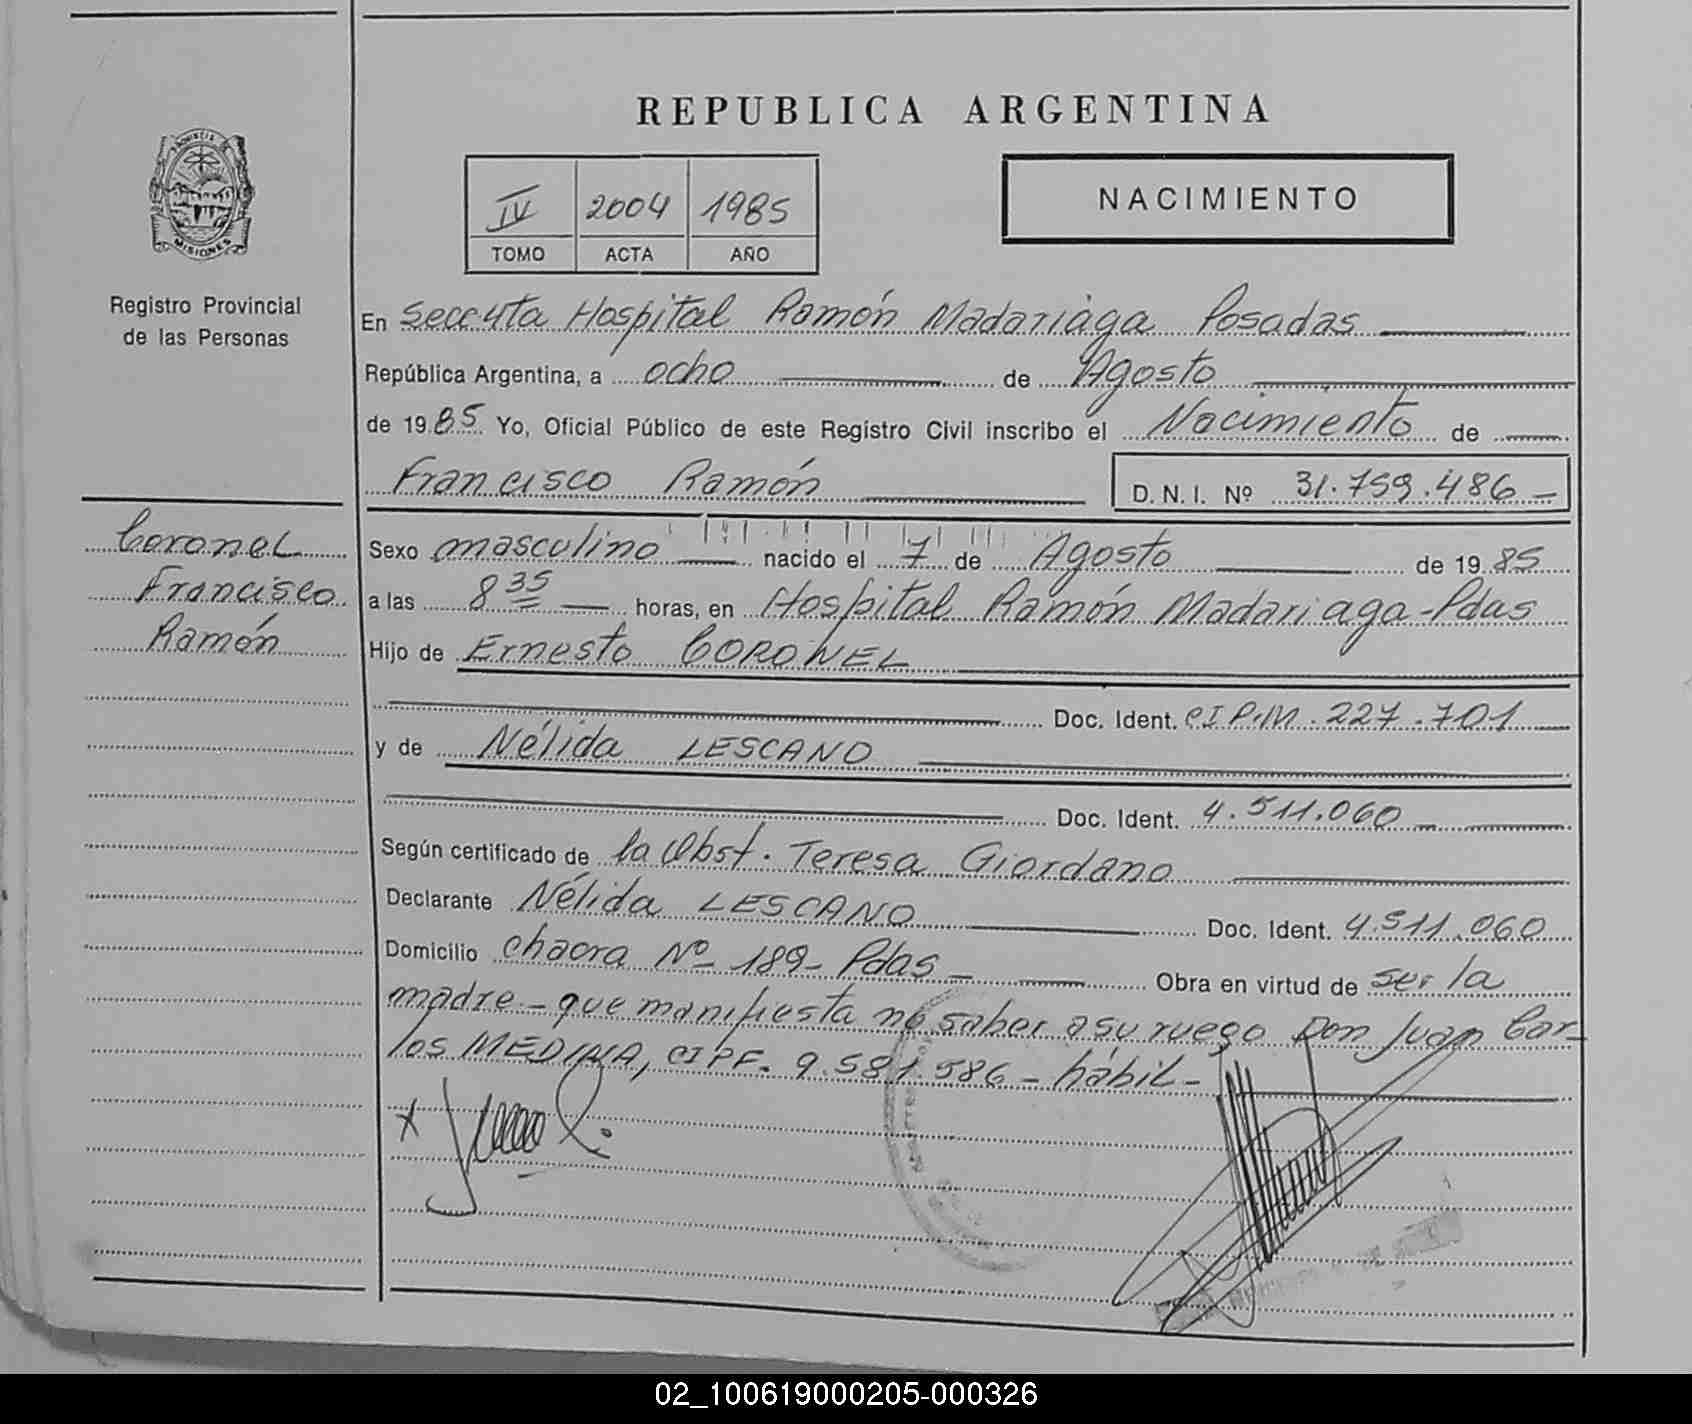 REPUBLICA ARGENTINA
PROVINCIA DE
MISIONES
Registro Provincial
de las Personas
IV 2004 1985
TOMO ACTA AÑO
NACIMIENTO
En Secc 4ta Hospital Ramón Madariaga Posadas
República Argentina, a ocho de Agosto
de 1985. Yo, Oficial Público de este Registro Civil inscribo el Nacimiento de
Francisco Ramón D.N.I. Nº 31.759.486
Coronel
Francisco
Ramón
Sexo masculino nacido el 7 de Agosto de 1985
a las 8 35 horas, en Hospital Ramón Madariaga-Pdas
Hijo de Ernesto CORONEL
Doc. Ident. CIP.M. 227.701
y de Nélida LESCANO
Doc. Ident. 4.511.060
Según certificado de la Obst. Teresa Giordano
Declarante Nélida LESCANO Doc. Ident. 4.511.060
Domicilio chacra Nº 189- Pdas Obra en virtud de ser la
madre - que manifiesta no saber a su ruego Don Juan Car-
los MEDINA, CIPF. 9.581.586 - hábil-
02_100619000205-000326